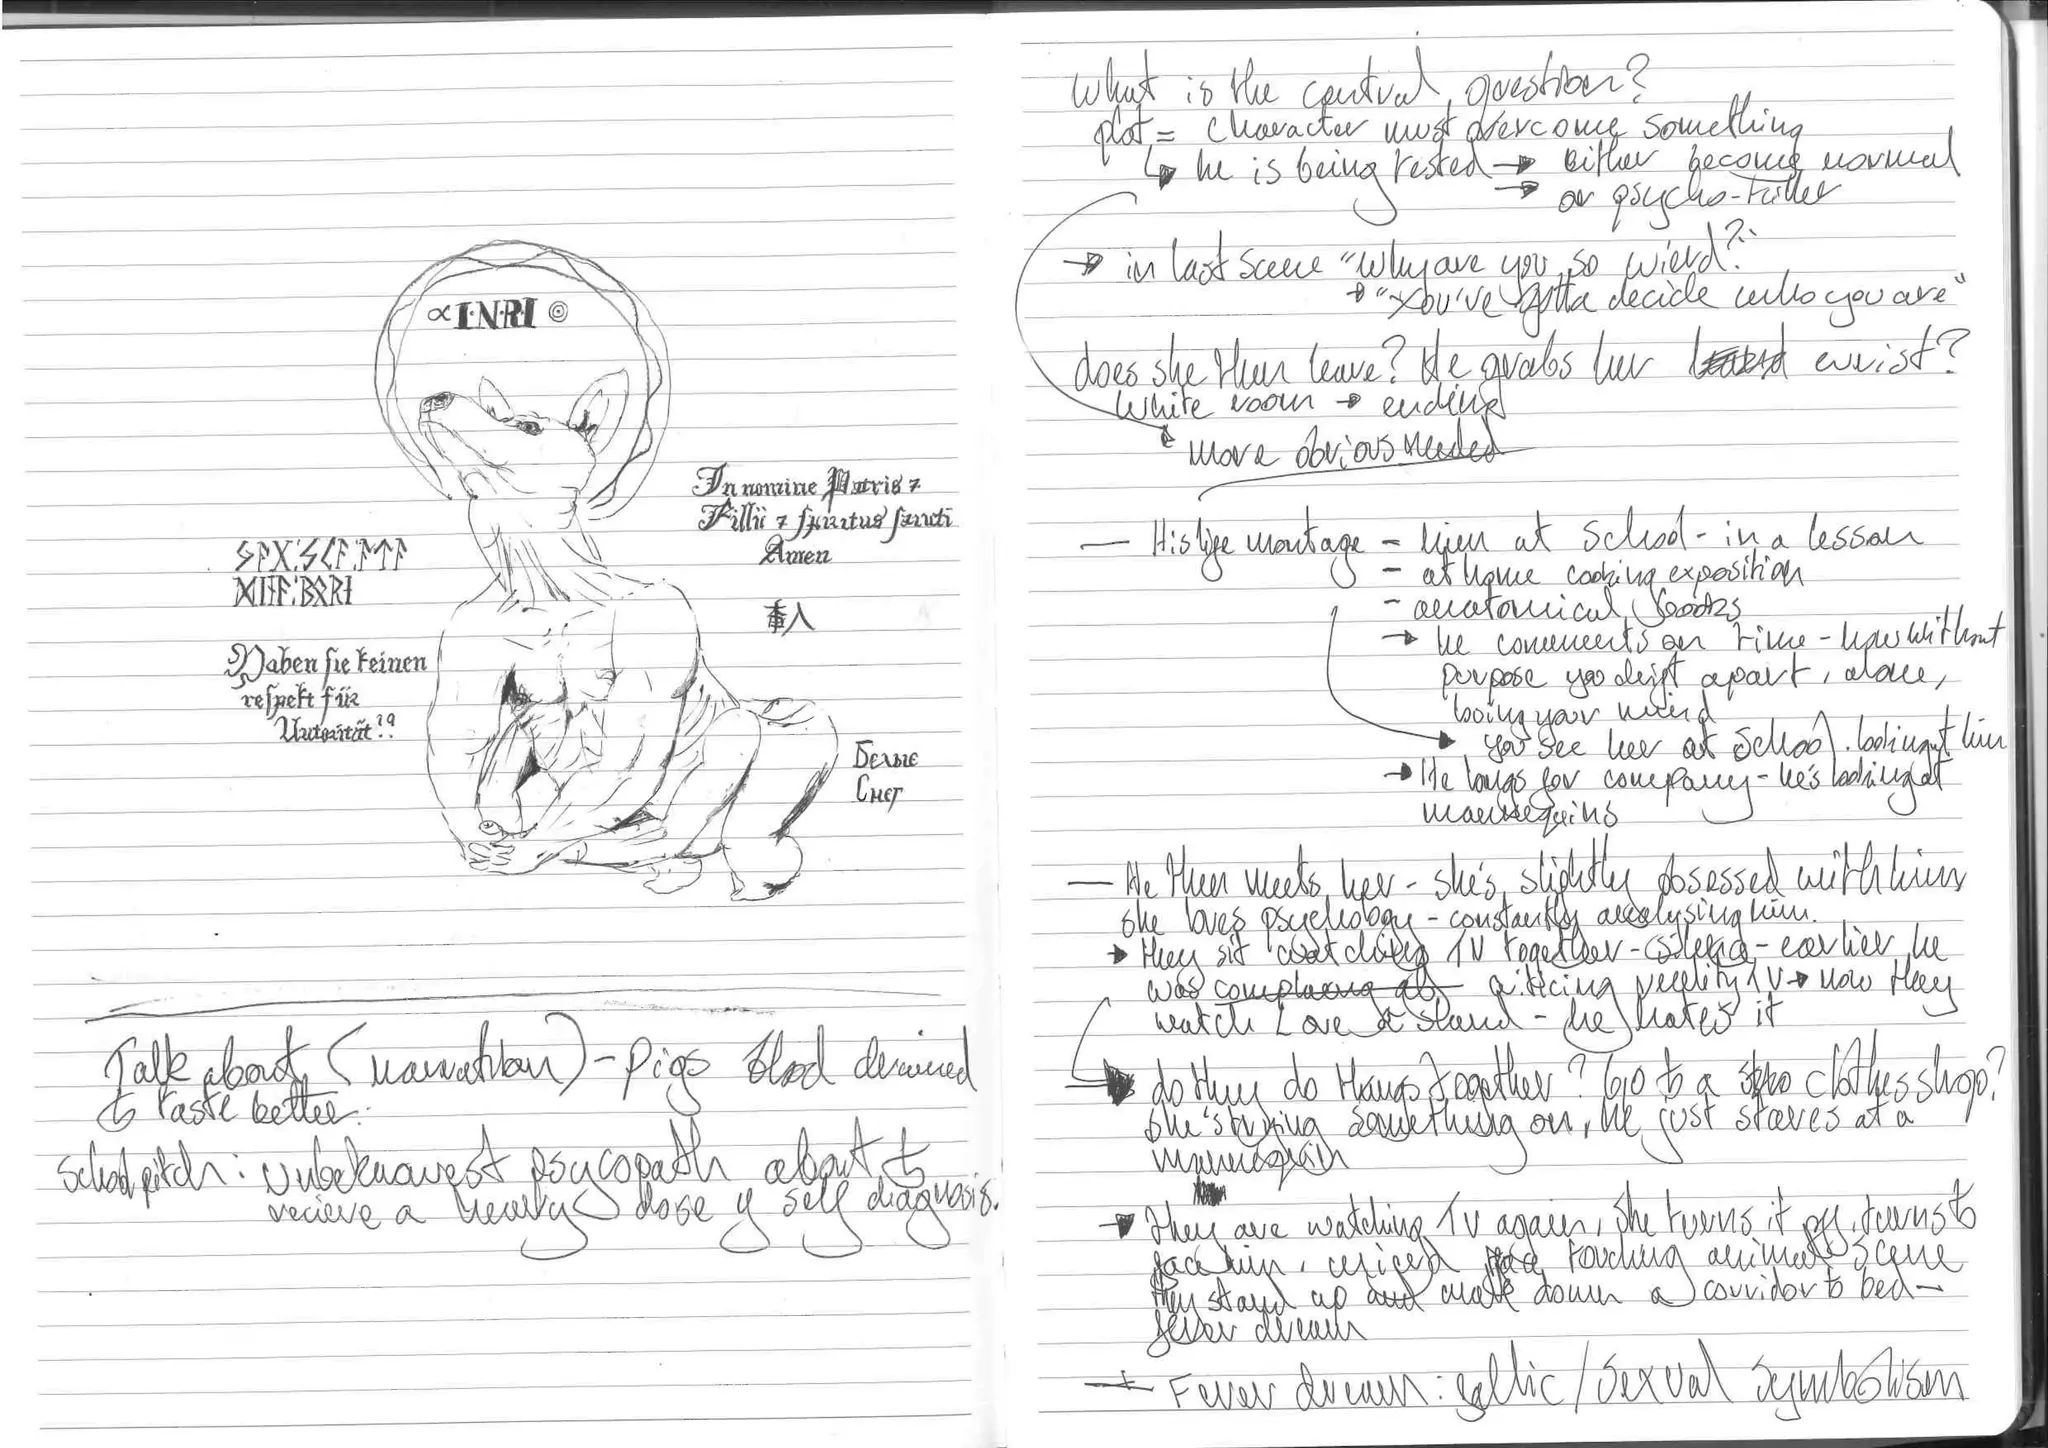 ∝ I·N·R·I ◎
In nomine Patris ⁊
Fillii ⁊ spiritus sancti
Amen
Haben sie keinen
respekt für
Autorität??
Белые
Снег
Talk about (narration) - pigs blood drained
to taste better.
School pitch: unbeknownest psycopath about to
recieve a heavy dose of self diagnosis.
What is the central question?
plot = character must overcome something
↳ he is being tested → either become normal
→ or psycho-killer
→ in last scene "Why are you so wierd?"
→ "You've gotta decide who you are"
does she then leave? He grabs her wrist?
White room → ending
more obvious needed
— His life montage - him at school - in a lesson
- at home cooking exposition
- anatomical books
→ he comments on time - how without
purpose you drift apart, alone,
losing your mind
you see her at school. looking at him
→ He longs for company - he's looking at
mannequins
— He then meets her - she's slightly obsessed with him
she loves psychology - constantly analysing him.
→ they sit watching TV together - silence - earlier he
was complaining ab criticing reality TV → now they
watch Love Island - he hates it
do they do things together? Go to a clothes shop?
she's trying something on, he just stares at a
mannequin
→ They are watching TV again, she turns it off, turns to
face him, touching animal scene
they stand up and walk down a corridor to bed -
fever dream
→ Fever dream: / sexual symbolism